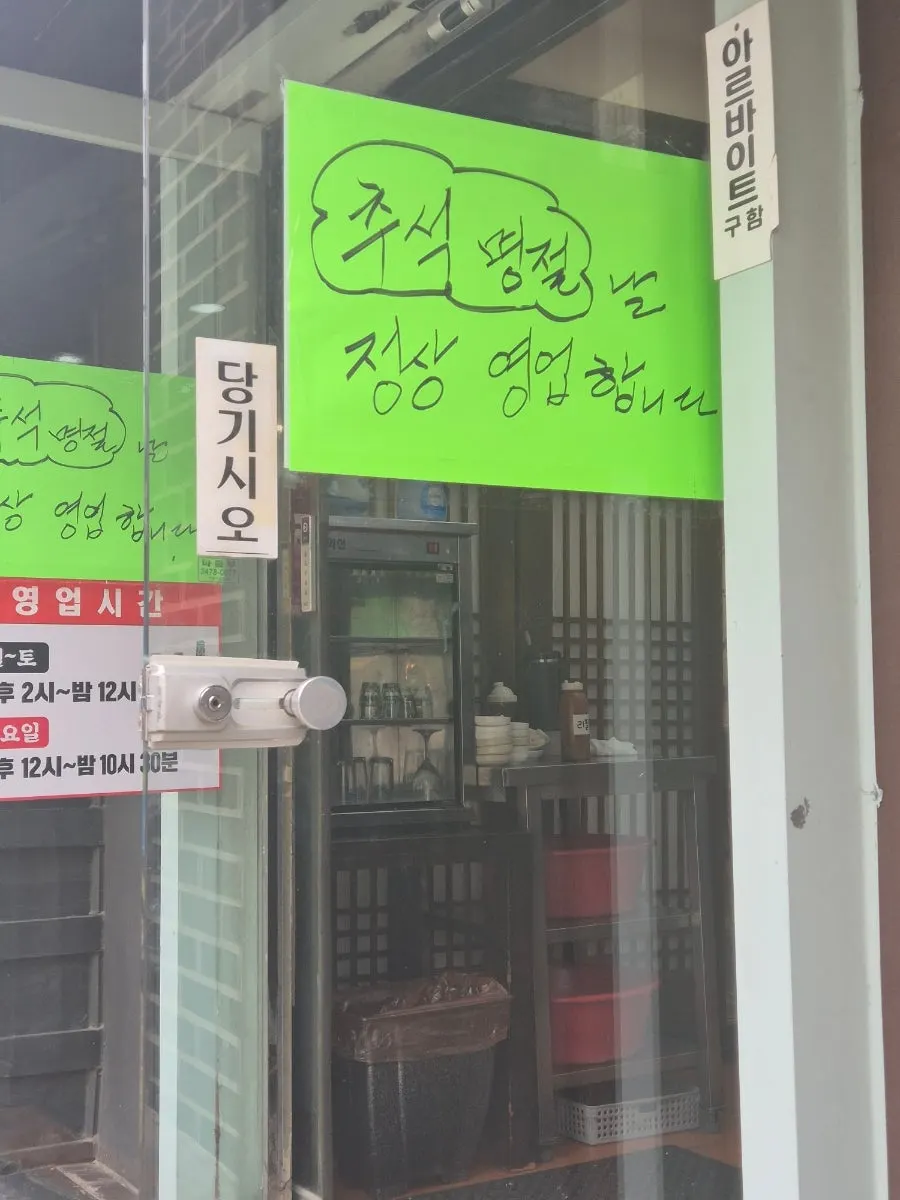 아르바이트
구함
추석 명절 날
정상 영업 합니다
당기시오
석 명절 날
상 영업 합니다
영업시간
~토
후 2시~밤 12시
요일
후 12시~밤 10시 30분